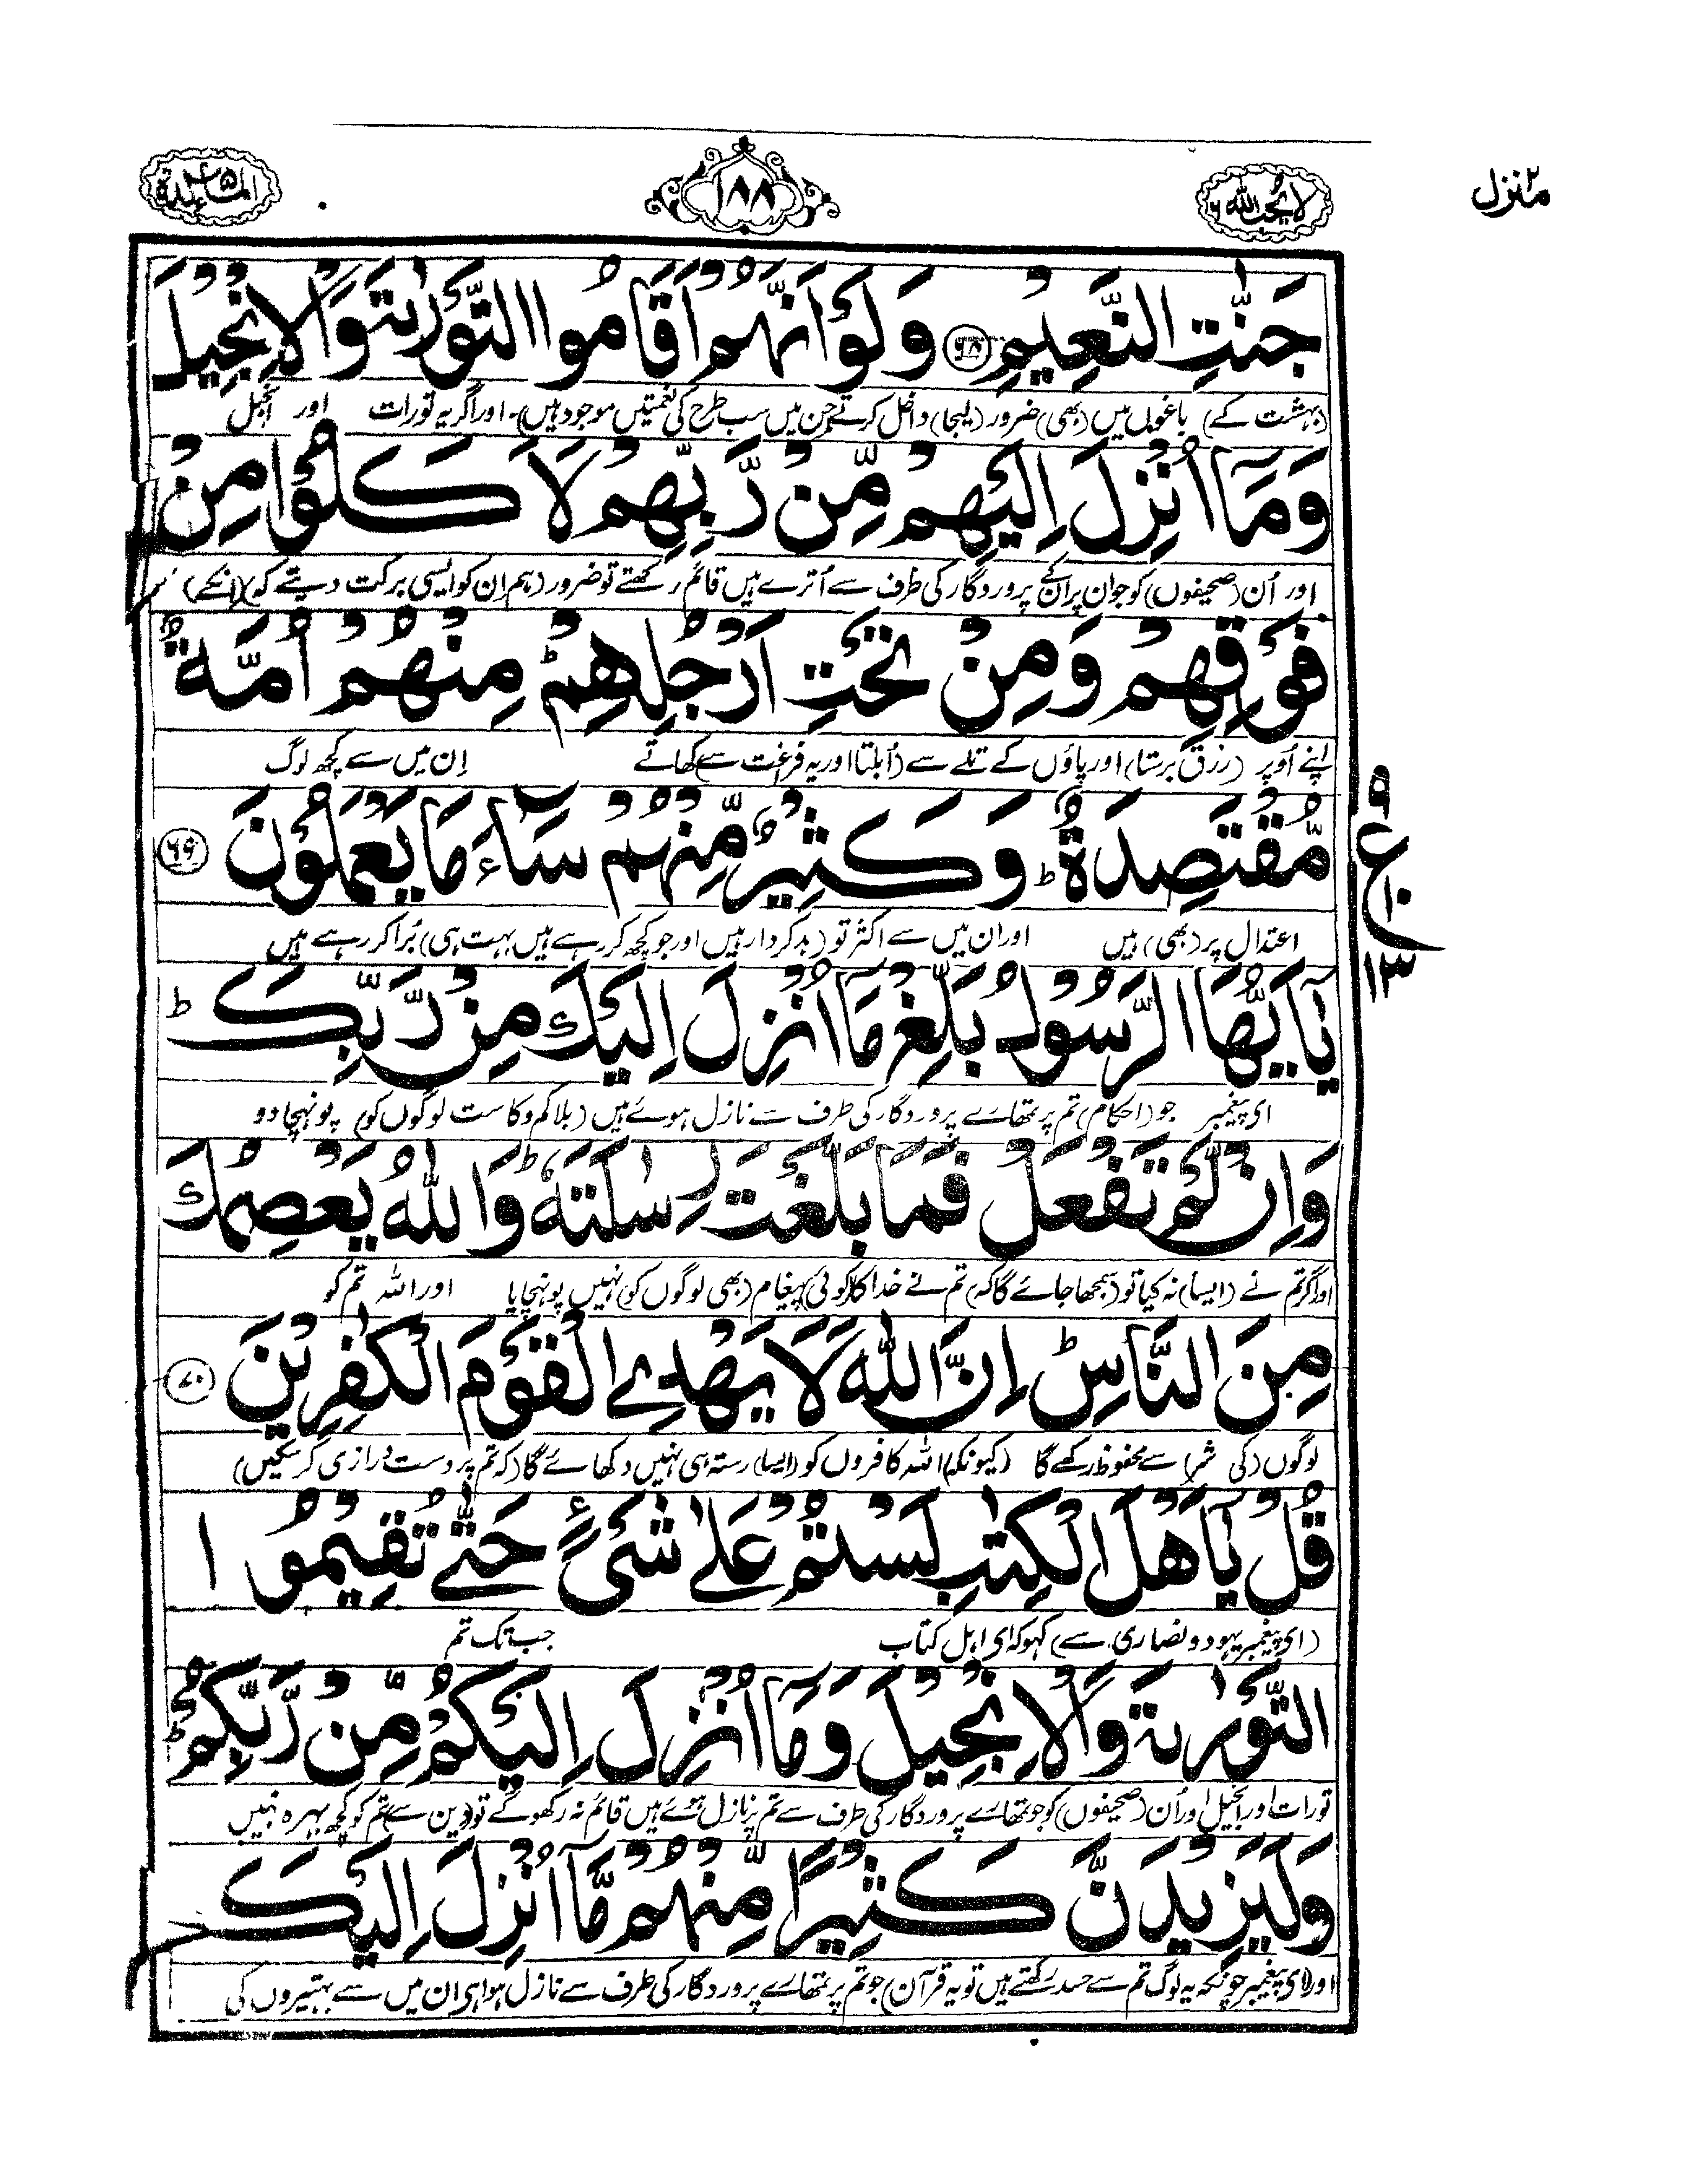 منزل ۲
لا یحب الله ۶
۱۸۸
المائدة ۵
جَنّٰتِ النَّعِيْمِ ۶۸ وَلَوْ اَنَّهُمْ اَقَامُوا التَّوْرٰىةَ وَالْاِنْجِيْلَ
(بہشت کے) باغوں میں (بھی) ضرور (لیجا) داخل کرتے جن میں سب طرح کی نعمتیں موجود ہیں)۔ اور اگر یہ تورات اور انجیل
وَمَآ اُنْزِلَ اِلَيْهِمْ مِّنْ رَّبِّهِمْ لَاَكَلُوْا مِنْ
اور اُن (صحیفوں) کو جو ان پر ان کے پروردگار کی طرف سے اُترے ہیں قائم رکھتے تو ضرور (ہم ان کو ایسی برکت دیتے کہ) (انکے)
فَوْقِهِمْ وَمِنْ تَحْتِ اَرْجُلِهِمْ ط مِنْهُمْ اُمَّةٌ
اپنے اُوپر (رزق برستا) اور پاؤں کے تلے سے (اُبلتا اور یہ فراغت سے) کھاتے اِن میں سے کچھ لوگ
مُّقْتَصِدَةٌ ط وَكَثِيْرٌ مِّنْهُمْ سَآءَ مَا يَعْمَلُوْنَ ۶۹
اعتدال پر (بھی) ہیں اور ان میں سے اکثر تو (بدکردار ہیں اور جو کچھ کر رہے ہیں بہت ہی) بُرا کر رہے ہیں
۹
ع
۱۰
۱۳
يٰٓاَيُّهَا الرَّسُوْلُ بَلِّغْ مَآ اُنْزِلَ اِلَيْكَ مِنْ رَّبِّكَ ط
ای پیغمبر جو (احکام) تم پر تمھارے پروردگار کی طرف سے نازل ہوئے ہیں (بلا کم و کاست لوگوں کو) پونہچا دو
وَاِنْ لَّمْ تَفْعَلْ فَمَا بَلَّغْتَ رِسٰلَتَهٗ ط وَاللّٰهُ يَعْصِمُكَ
اور اگر تم نے (ایسا) نہ کیا تو (سمجھا جائے گا کہ) تم نے خدا کا (کوئی) پیغام (بھی لوگوں کو) نہیں پونہچایا اور اللہ تم کو
مِنَ النَّاسِ ط اِنَّ اللّٰهَ لَا يَهْدِي الْقَوْمَ الْكٰفِرِيْنَ ۷۰
لوگوں (کی شر) سے محفوظ رکھے گا (کیونکہ) اللہ کافروں کو (ایسا) رستہ ہی نہیں دکھائے گا (کہ تم پر دست درازی کر سکیں)
قُلْ يٰٓاَهْلَ الْكِتٰبِ لَسْتُمْ عَلٰى شَيْءٍ حَتّٰى تُقِيْمُوا
(ای پیغمبر یہود و نصاری سے) کہو کہ ای اہل کتاب جب تک تم
التَّوْرٰىةَ وَالْاِنْجِيْلَ وَمَآ اُنْزِلَ اِلَيْكُمْ مِّنْ رَّبِّكُمْ ط
تورات اور انجیل اور اُن (صحیفوں) کو جو تمھارے پروردگار کی طرف سے تم پر نازل ہوئے ہیں قائم نہ رکھو گے تو (دین سے) تم کو کچھ بہرہ نہیں
وَلَيَزِيْدَنَّ كَثِيْرًا مِّنْهُمْ مَّآ اُنْزِلَ اِلَيْكَ
اور (ای پیغمبر چونکہ یہ لوگ تم سے حسد رکھتے ہیں تو یہ قرآن) جو تم پر تمھارے پروردگار کی طرف سے نازل ہوا ہی ان میں سے بہتیروں کی